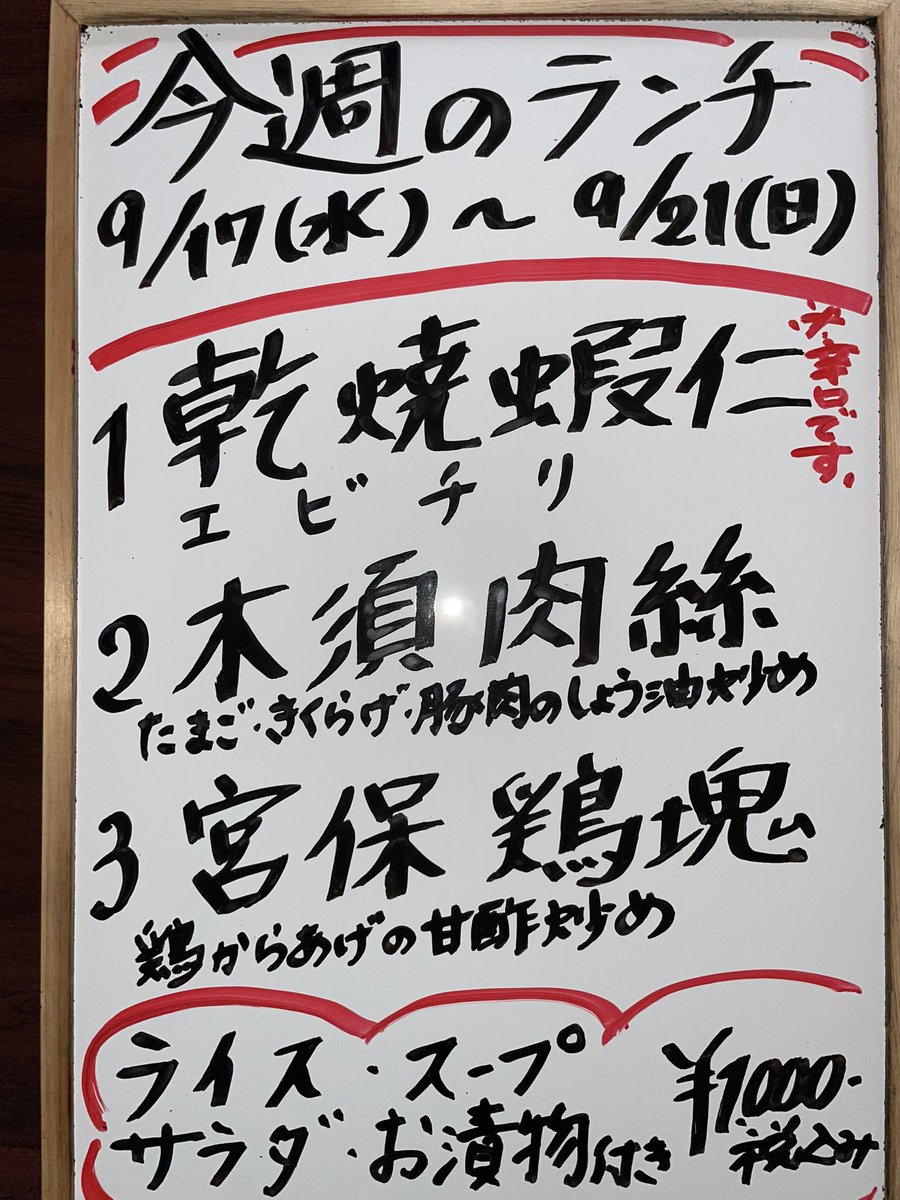 今週のランチ
9/17(水)～9/21(日)
1 乾焼蝦仁
※辛口です。
エビチリ
2 木須肉絲
たまご・きくらげ・豚肉のしょう油炒め
3 宮保鶏塊
鶏からあげの甘酢炒め
ライス・スープ
サラダ・お漬物付き
¥1000-
税込み